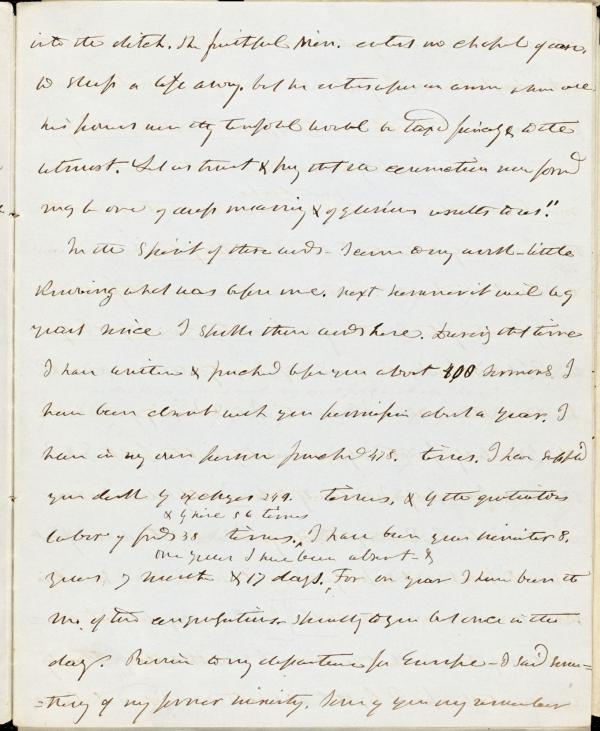 into the ditch. The faithful Min. enters no chapel of ease,
to sleep a life away. but he enters upon an arena where all
his powers
utmost. Let us trust & pray that the connection now formd
may be one of deep meaning & of glorious results to us."
In the Spirit of these words - I came to my work - little
knowing what was before me. next summer it will be 9
years since I spoke these words here. During that time
I have written & preached before you about 400 sermons. I
have been absent with your permission about a year. I
have in my own person preached 478. times. I have supplied
your desk by exchanges 249. times, & by the gratuitous
& by hire 56 times
labor of friends 38 times. I have been your minister 8.
one year I have been absent - &
years, 7 month & 17 days. For one year I have been the
Min. of two congregations - strictly to you but once in the
day. Previous to my departure for Europe - I said some=
=thing of my former ministry. Some of you may remember